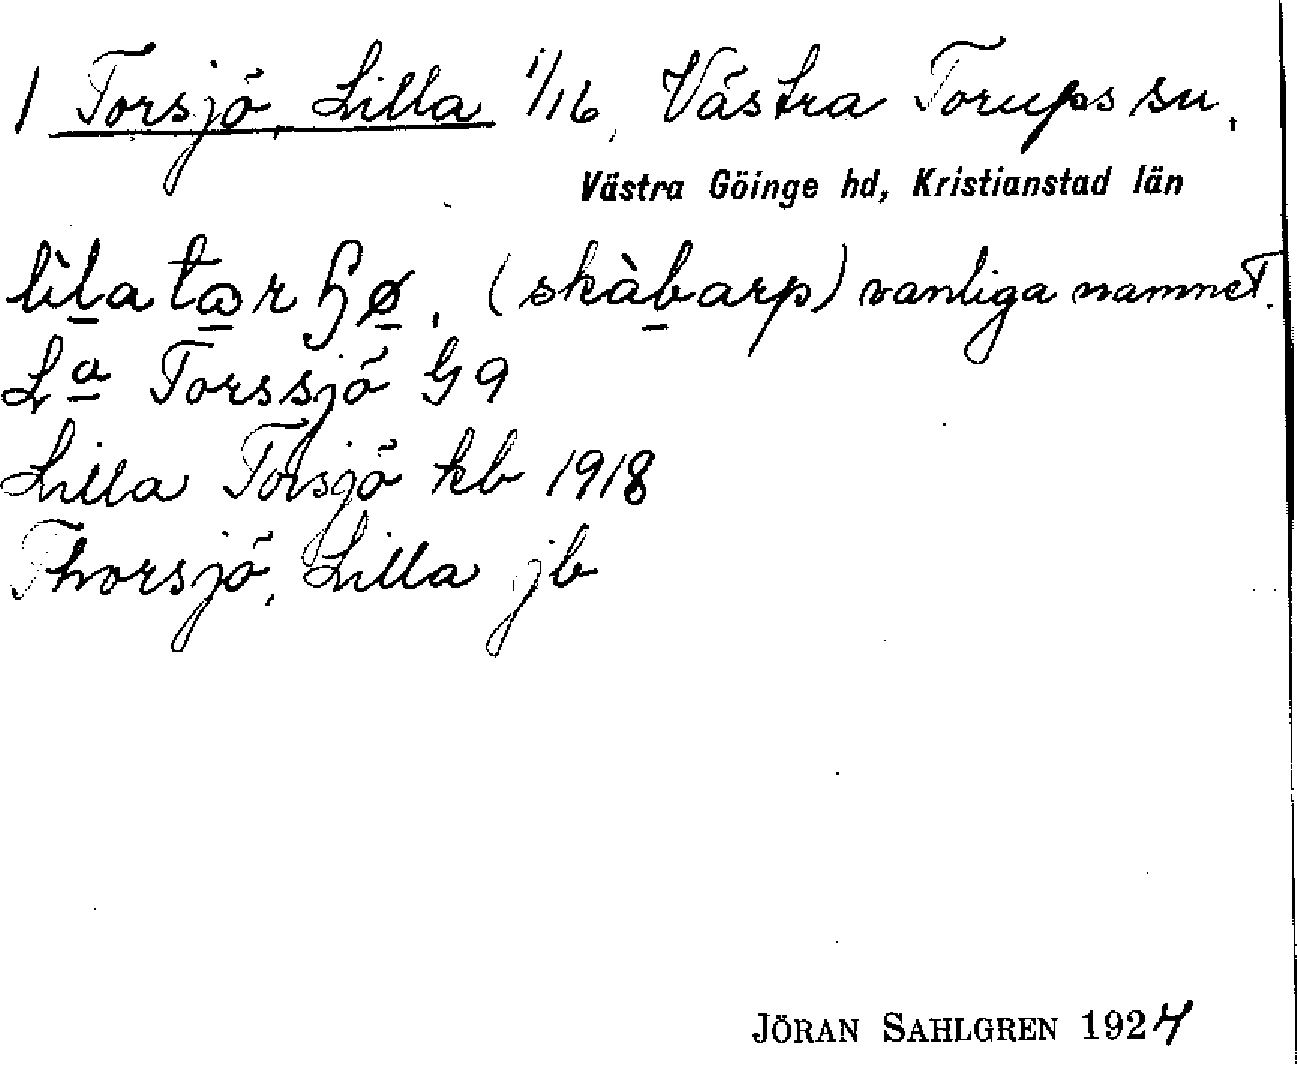 1 Torsjö, Lilla 1/16, Västra Torups sn,
Västra Göinge hd, Kristianstad län
lìla tɷrɧø, (skàbarp) vanliga namnet.
Lª Torssjö G 9
Lilla Torsjö kb 1918
Thorsjö, Lilla jb
JÖRAN SAHLGREN 1924